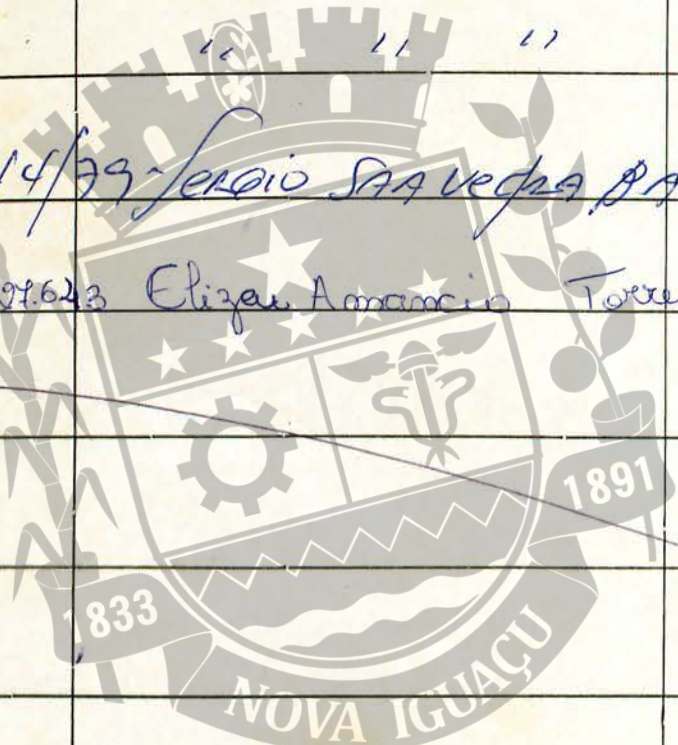 " " "
14/79 Sergio SAAVedRA BA
27.643 Elizeu Amancio Torre
1891
1833
NOVA IGUAÇU